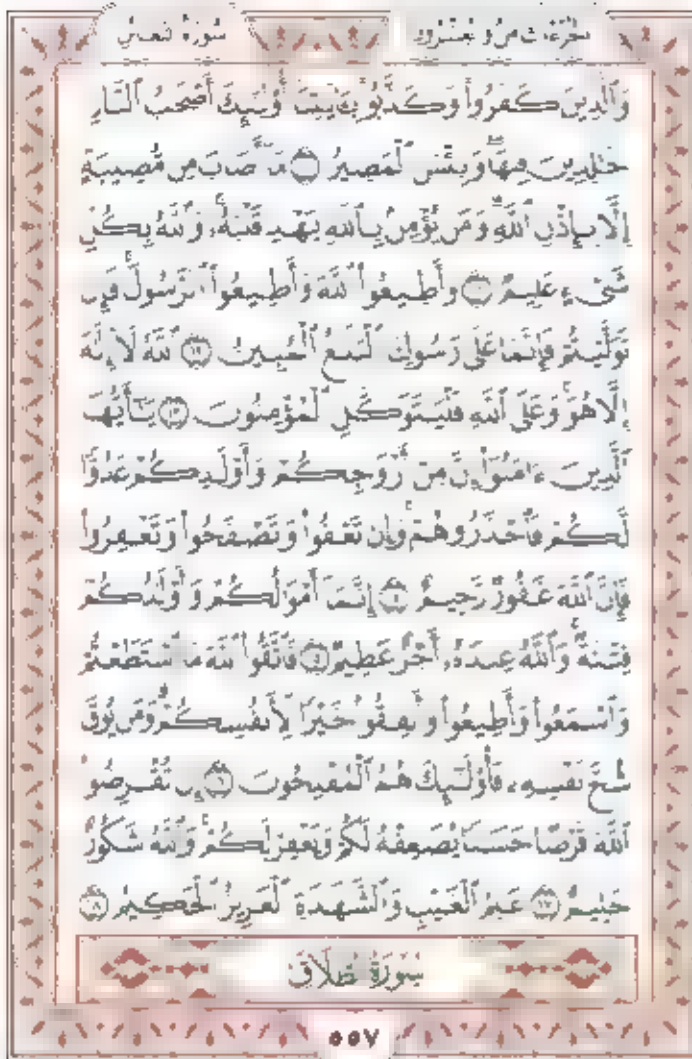 سُورَةُ التَّغَابُنِ الجُزْءُ الثَّامِنُ وَالعِشْرُونَ
وَٱلَّذِينَ كَفَرُوا۟ وَكَذَّبُوا۟ بِـَٔايَٰتِنَآ أُو۟لَٰٓئِكَ أَصْحَٰبُ ٱلنَّارِ
خَٰلِدِينَ فِيهَا وَبِئْسَ ٱلْمَصِيرُ ١٠ مَآ أَصَابَ مِن مُّصِيبَةٍ
إِلَّا بِإِذْنِ ٱللَّهِ وَمَن يُؤْمِنۢ بِٱللَّهِ يَهْدِ قَلْبَهُۥ وَٱللَّهُ بِكُلِّ
شَىْءٍ عَلِيمٌ ١١ وَأَطِيعُوا۟ ٱللَّهَ وَأَطِيعُوا۟ ٱلرَّسُولَ فَإِن
تَوَلَّيْتُمْ فَإِنَّمَا عَلَىٰ رَسُولِنَا ٱلْبَلَٰغُ ٱلْمُبِينُ ١٢ ٱللَّهُ لَآ إِلَٰهَ
إِلَّا هُوَ وَعَلَى ٱللَّهِ فَلْيَتَوَكَّلِ ٱلْمُؤْمِنُونَ ١٣ يَٰٓأَيُّهَا
ٱلَّذِينَ ءَامَنُوٓا۟ إِنَّ مِنْ أَزْوَٰجِكُمْ وَأَوْلَٰدِكُمْ عَدُوًّا
لَّكُمْ فَٱحْذَرُوهُمْ وَإِن تَعْفُوا۟ وَتَصْفَحُوا۟ وَتَغْفِرُوا۟
فَإِنَّ ٱللَّهَ غَفُورٌ رَّحِيمٌ ١٤ إِنَّمَآ أَمْوَٰلُكُمْ وَأَوْلَٰدُكُمْ
فِتْنَةٌ وَٱللَّهُ عِندَهُۥٓ أَجْرٌ عَظِيمٌ ١٥ فَٱتَّقُوا۟ ٱللَّهَ مَا ٱسْتَطَعْتُمْ
وَٱسْمَعُوا۟ وَأَطِيعُوا۟ وَأَنفِقُوا۟ خَيْرًا لِّأَنفُسِكُمْ وَمَن يُوقَ
شُحَّ نَفْسِهِۦ فَأُو۟لَٰٓئِكَ هُمُ ٱلْمُفْلِحُونَ ١٦ إِن تُقْرِضُوا۟
ٱللَّهَ قَرْضًا حَسَنًا يُضَٰعِفْهُ لَكُمْ وَيَغْفِرْ لَكُمْ وَٱللَّهُ شَكُورٌ
حَلِيمٌ ١٧ عَٰلِمُ ٱلْغَيْبِ وَٱلشَّهَٰدَةِ ٱلْعَزِيزُ ٱلْحَكِيمُ ١٨
سُورَةُ الطَّلَاقِ
٥٥٧